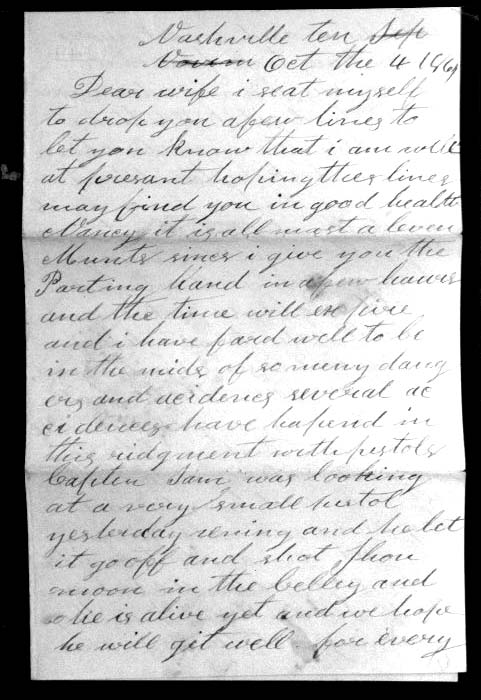 Nashville ten Sep
Novem Oct the 4 186
Dear wife i seat myself
to drop you a few lines to
let you know that i am well
at presant hoping thes lines
may find you in good health
Nancy it is all most a leven
Munts sines i give you the
Parting hand in a few hours
and the time will ex pire
and i have fard well to be
in the mids of so meny dang
ers and acidences several ac
cidences have hapend in
this ridgment with pistols
Capten Sam was looking
at a very small pistol
yesterday evning and he let
it go off and shot Jhon
moon in the belley and
he is alive yet and we hope
he will git well for every